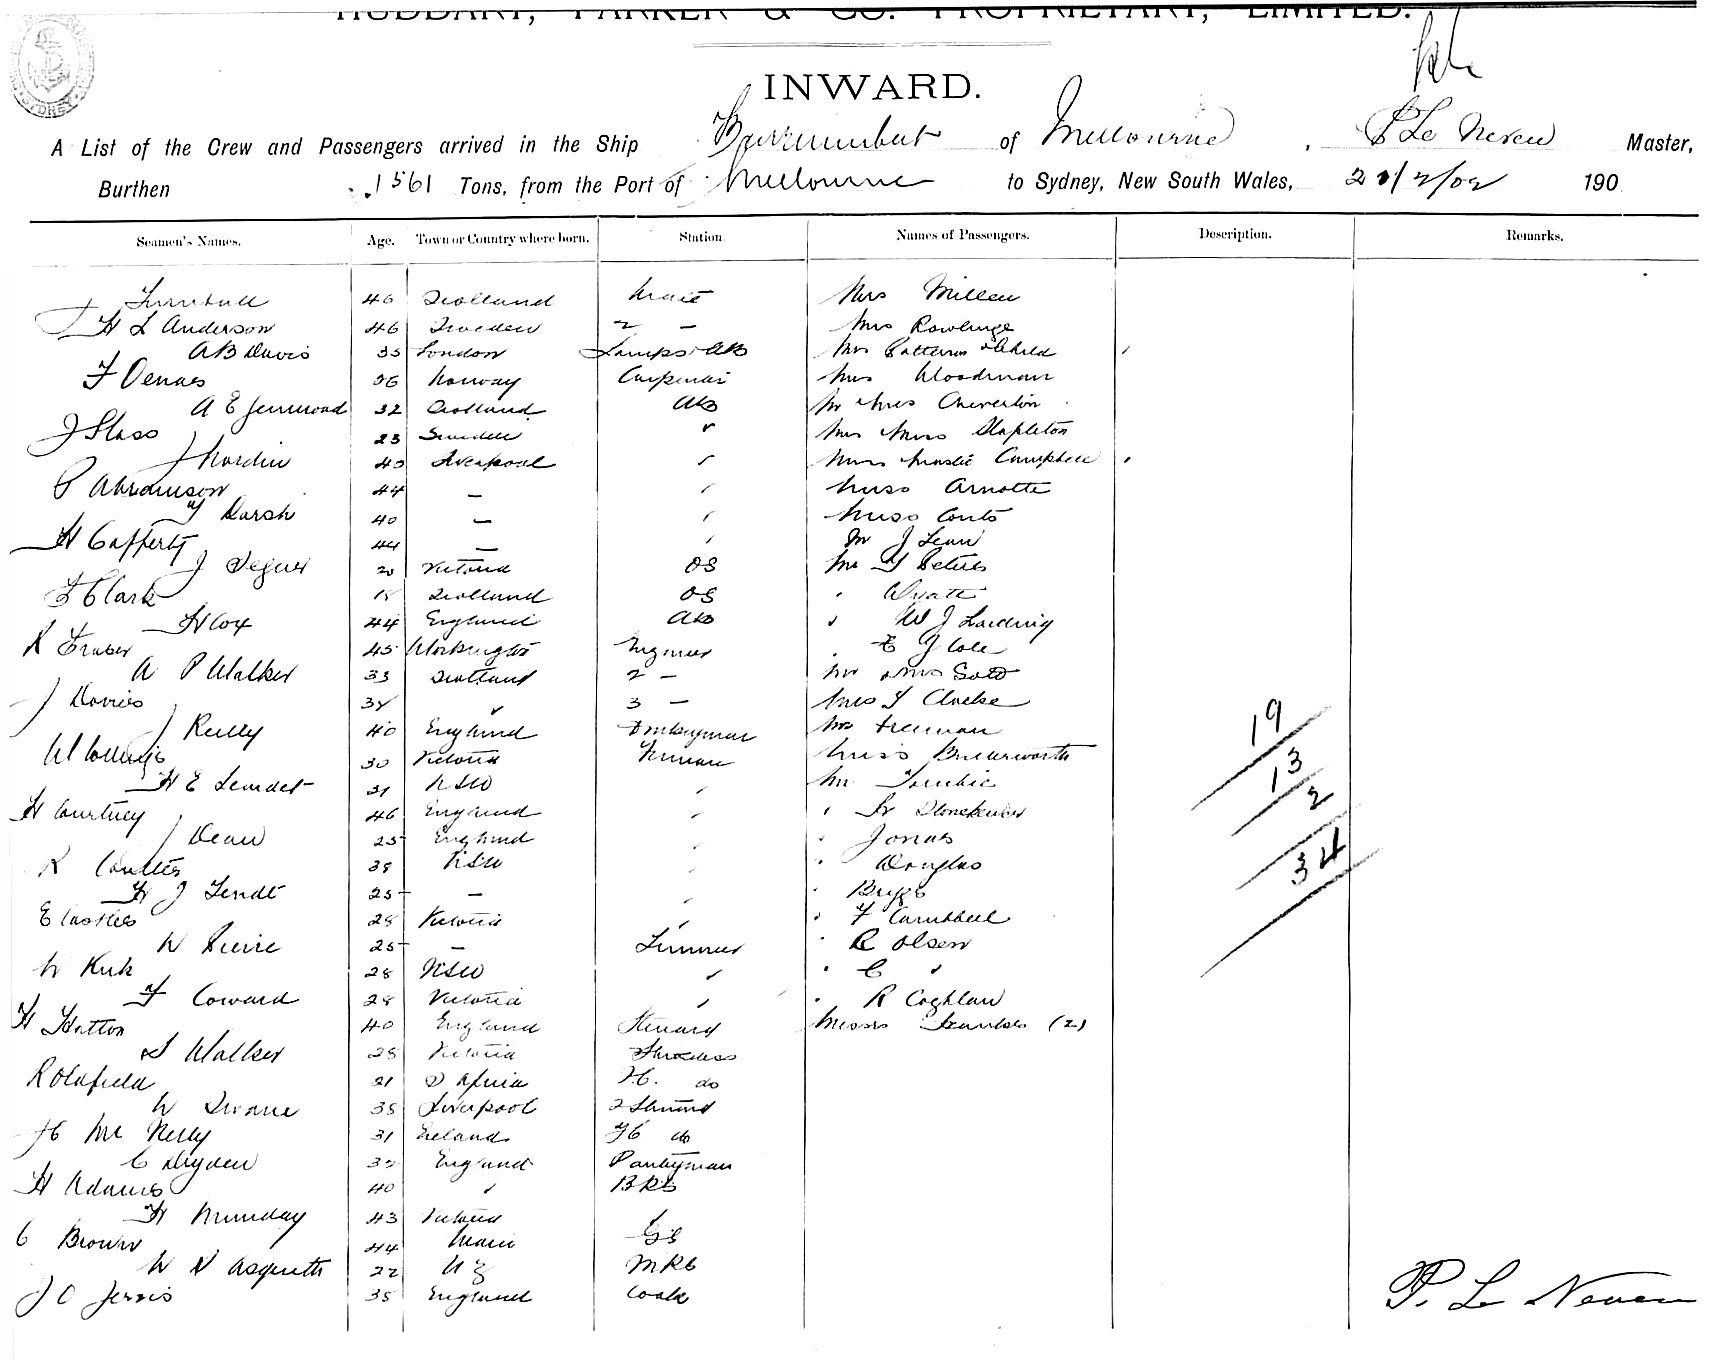 HUDDART, PARKER & CO. PROPRIETARY, LIMITED.
INWARD.
A List of the Crew and Passengers arrived in the Ship Burrumbeet of Melbourne, P Le Neveu Master,
Burthen 1561 Tons, from the Port of Melbourne to Sydney, New South Wales, 190
Seamen's Names. Age. Town or Country where born. Station Names of Passengers. Description. Remarks.
Turnbull 46 Scotland Mate Mrs Millen
H L Anderson 46 Sweden 2 — Mrs Rawlings
A B Davis 35 London Lamps AB Mrs Patterson & Child
F Oenaes 36 Norway Carpenter Mrs Woodman
A E Jennwood 32 Scotland AB Mr Mrs Cheverton
J Slass 23 Sweden " Mrs Miss Stapleton
J Nordin 40 Liverpool " Mrs Master Campbell
P Abrdmison 44 — " Miss Arnotte
Y Darsh 40 — " Miss Couts
H Cafferty 44 — " Mr J Lean
J Seguer 20 Victoria OS Mr Y Peters
F Clark 18 Scotland OS " Wyatt
H Cox 44 England AB " W J Larding
R Fraser 45 Workington Engineer " E J Cole
A P Walker 33 Scotland 2 — Mr & Mrs Soto
J Davies 38 " 3 — Mrs Y Clarke
J Reilly 40 England Donkeyman Mrs Freeman
W Collings 30 Victoria Fireman Miss Butterworth
H E Lendet 31 NSW " Mr
H Courtney 46 England " " Dr Stonehewer
J Dean 25 England " " Jonas
R Coulter 38 NSW " " Douglas
H J Lendt 25 — " " Briggs
E Castles 28 Victoria " " F Campbell
W Peirie 25 — Trimmer " R Olsen
W Kirk 28 NSW " " C "
F Coward 28 Victoria " " R Coghlan
H Hatton 40 England Steward Messrs Frankles (2)
S Walker 28 Victoria Stewardess
R Oldfield 21 S Africa F.C. do
W Swane 38 Liverpool 2 Steward
H Mc Nelly 31 Ireland FC do
C Dryden 32 England Pantryman
H Adams 40 " BRS
H Munday 43 Victoria
C Brown 44 GS
W N Asquith 22 N Z MRS
J C Jervis 35 England Cook
19
13
2
34
P. Le Neveu